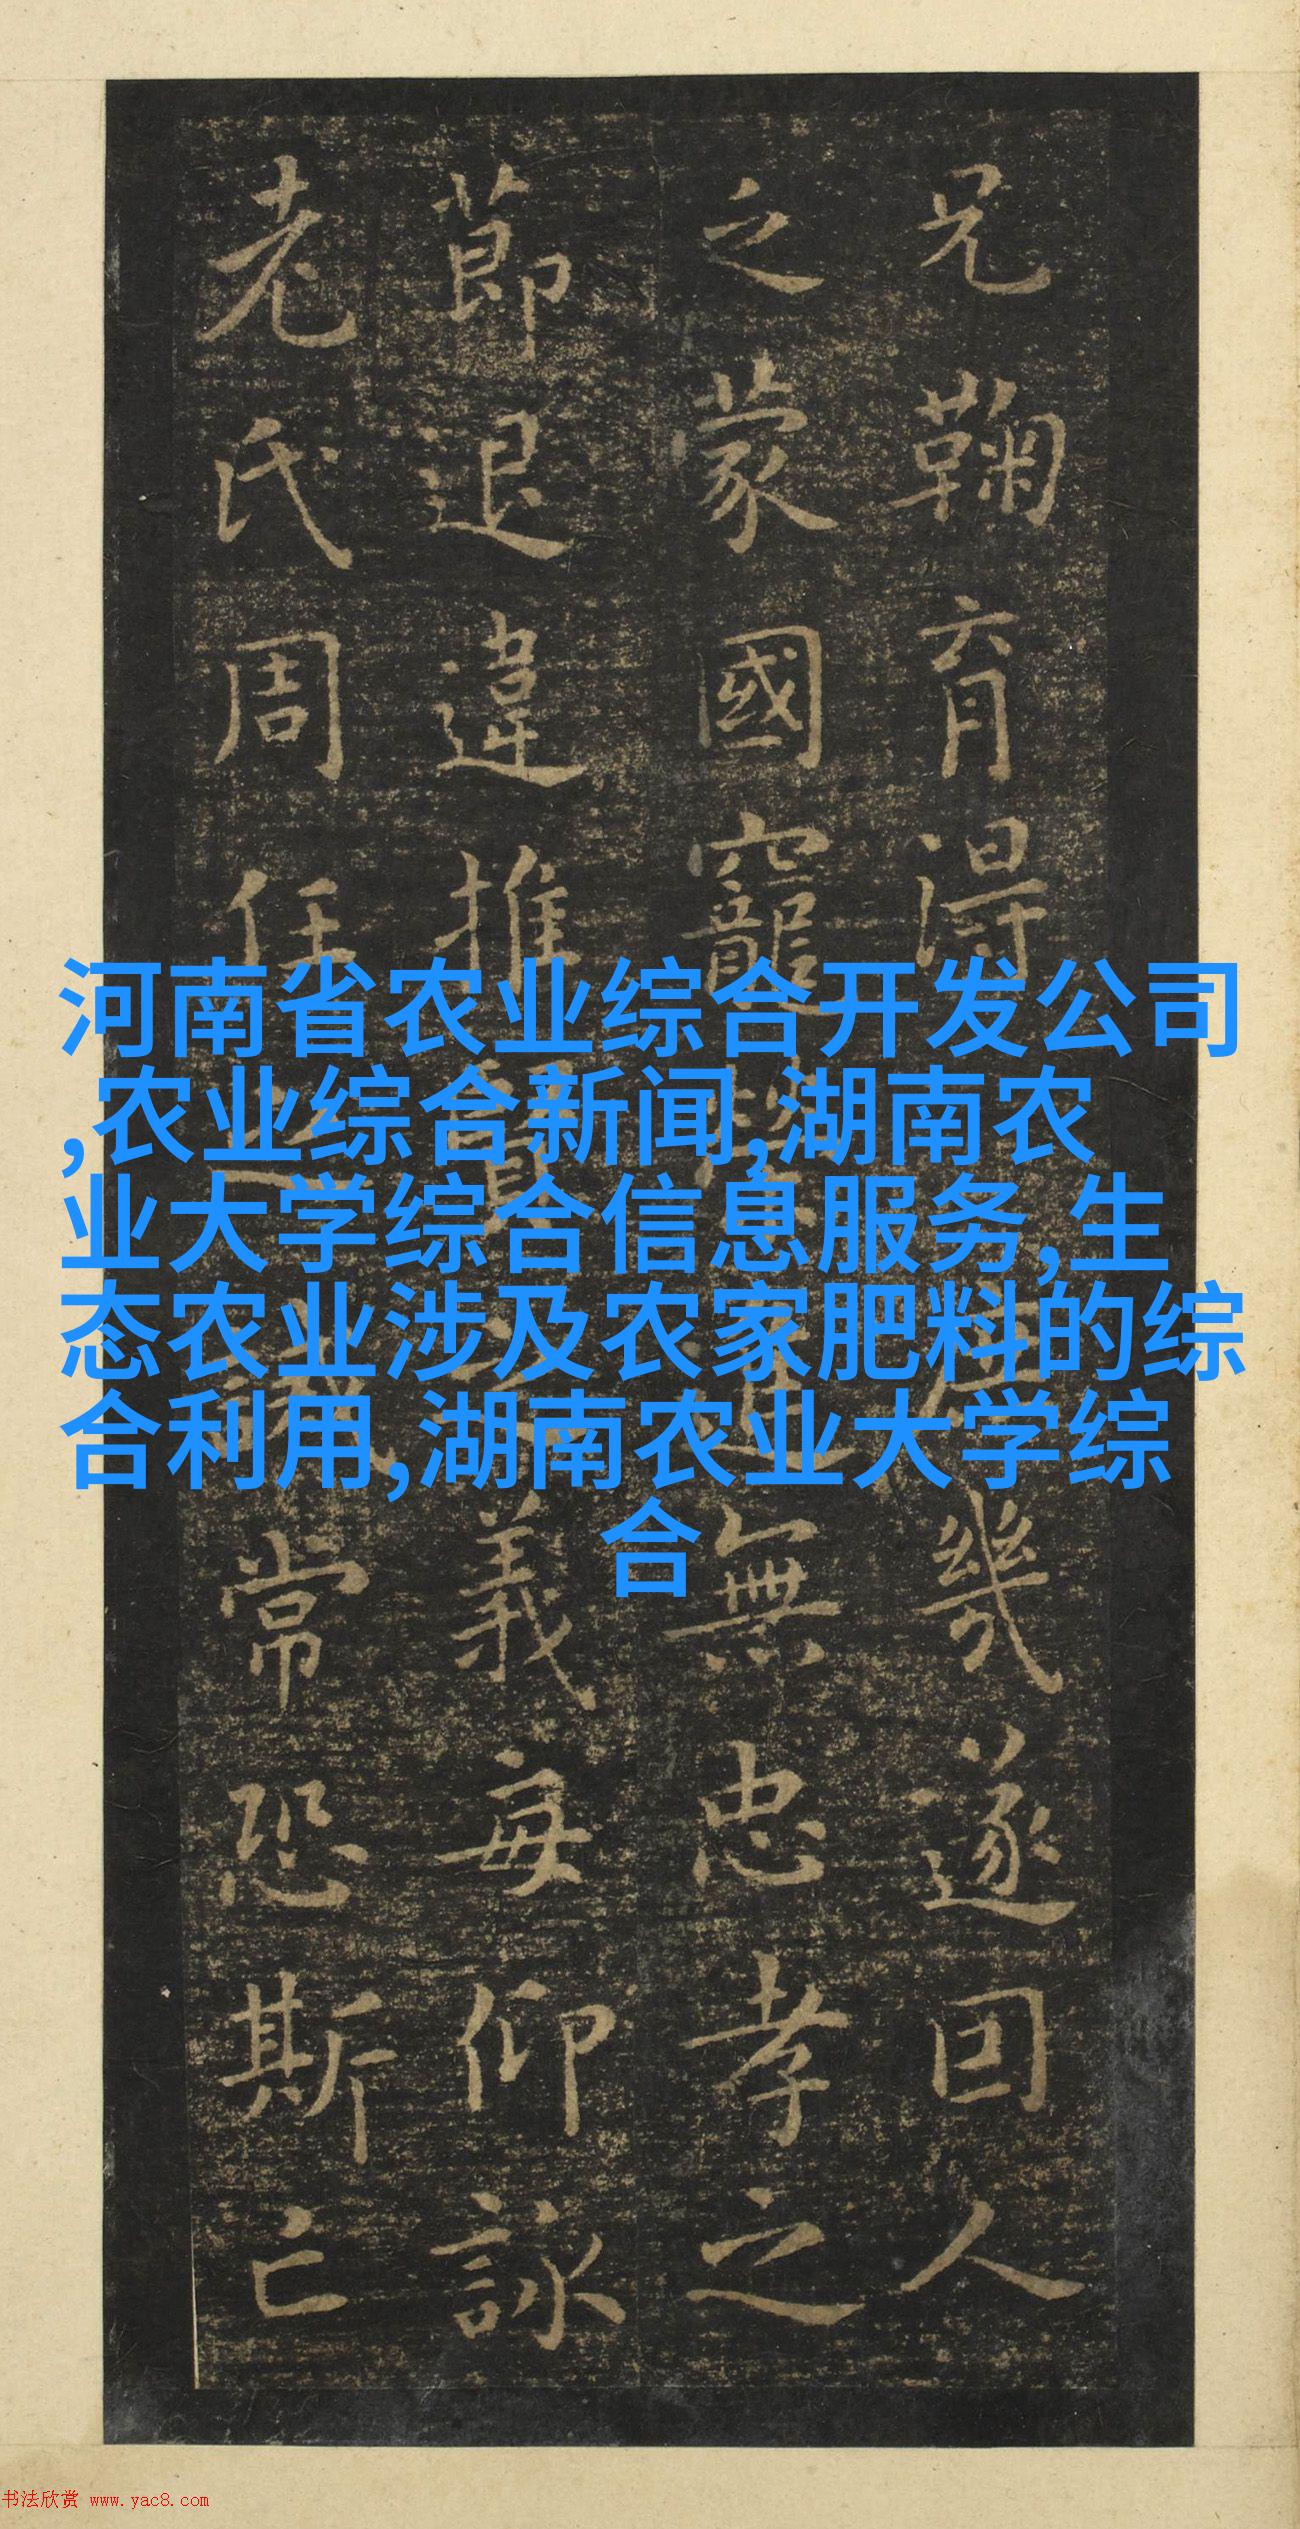 河南省农业综合开发公司
,农业综合新闻,湖南农
业大学综合信息服务,生
态农业涉及农家肥料的综
合利用,湖南农业大学综
合
兄鞠育得庶幾遂因人
乏蒙國寵榮進無忠孝之
節退違推賢之義每仰詠
老氏周任之誡常恐斯亡
书法欣赏 www.yac8.com